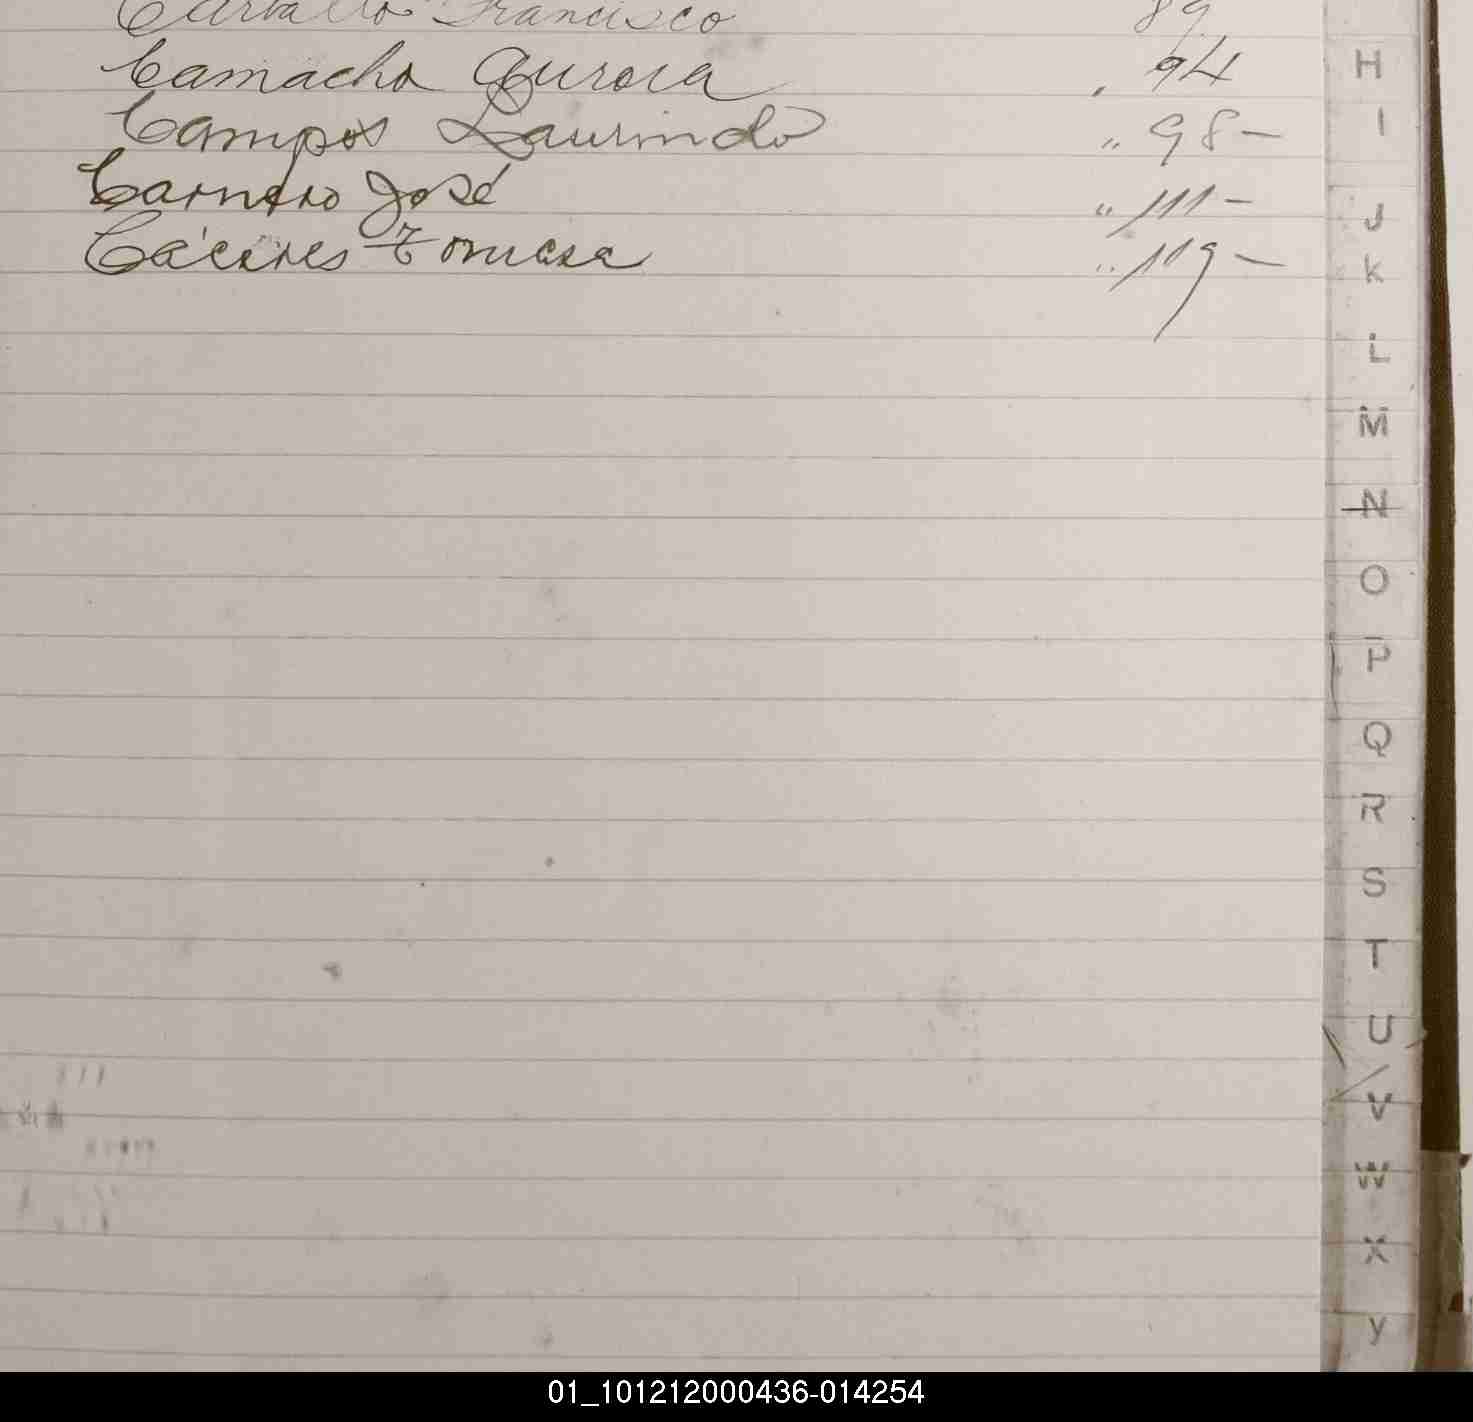 Carballo Francisco 89
Camacho Aurora , 94
Campos Laurindo " 98 -
Carnero José " 111 -
Cáceres Tomasa " 119 -
H
I
J
K
L
M
N
O
P
Q
R
S
T
U
V
W
X
Y
01_101212000436-014254